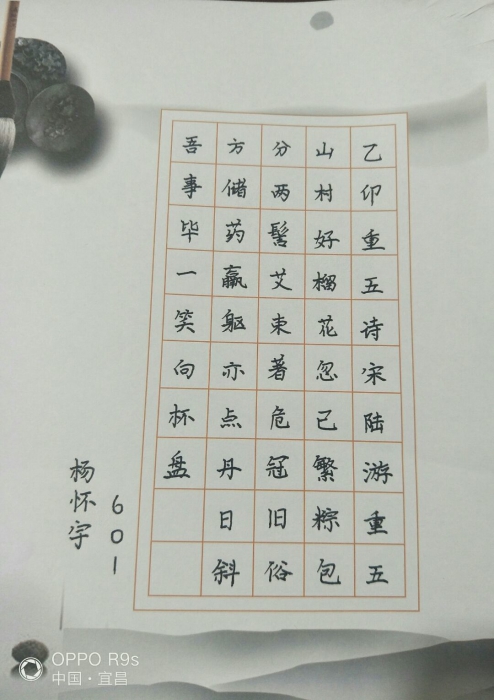 乙卯重五诗宋陆游重五
山村好榴花忽已繁粽包
分两髻艾束著危冠旧俗
方储药羸躯亦点丹日斜
吾事毕一笑向杯盘
601
杨怀宇
OPPO R9s
中国·宜昌